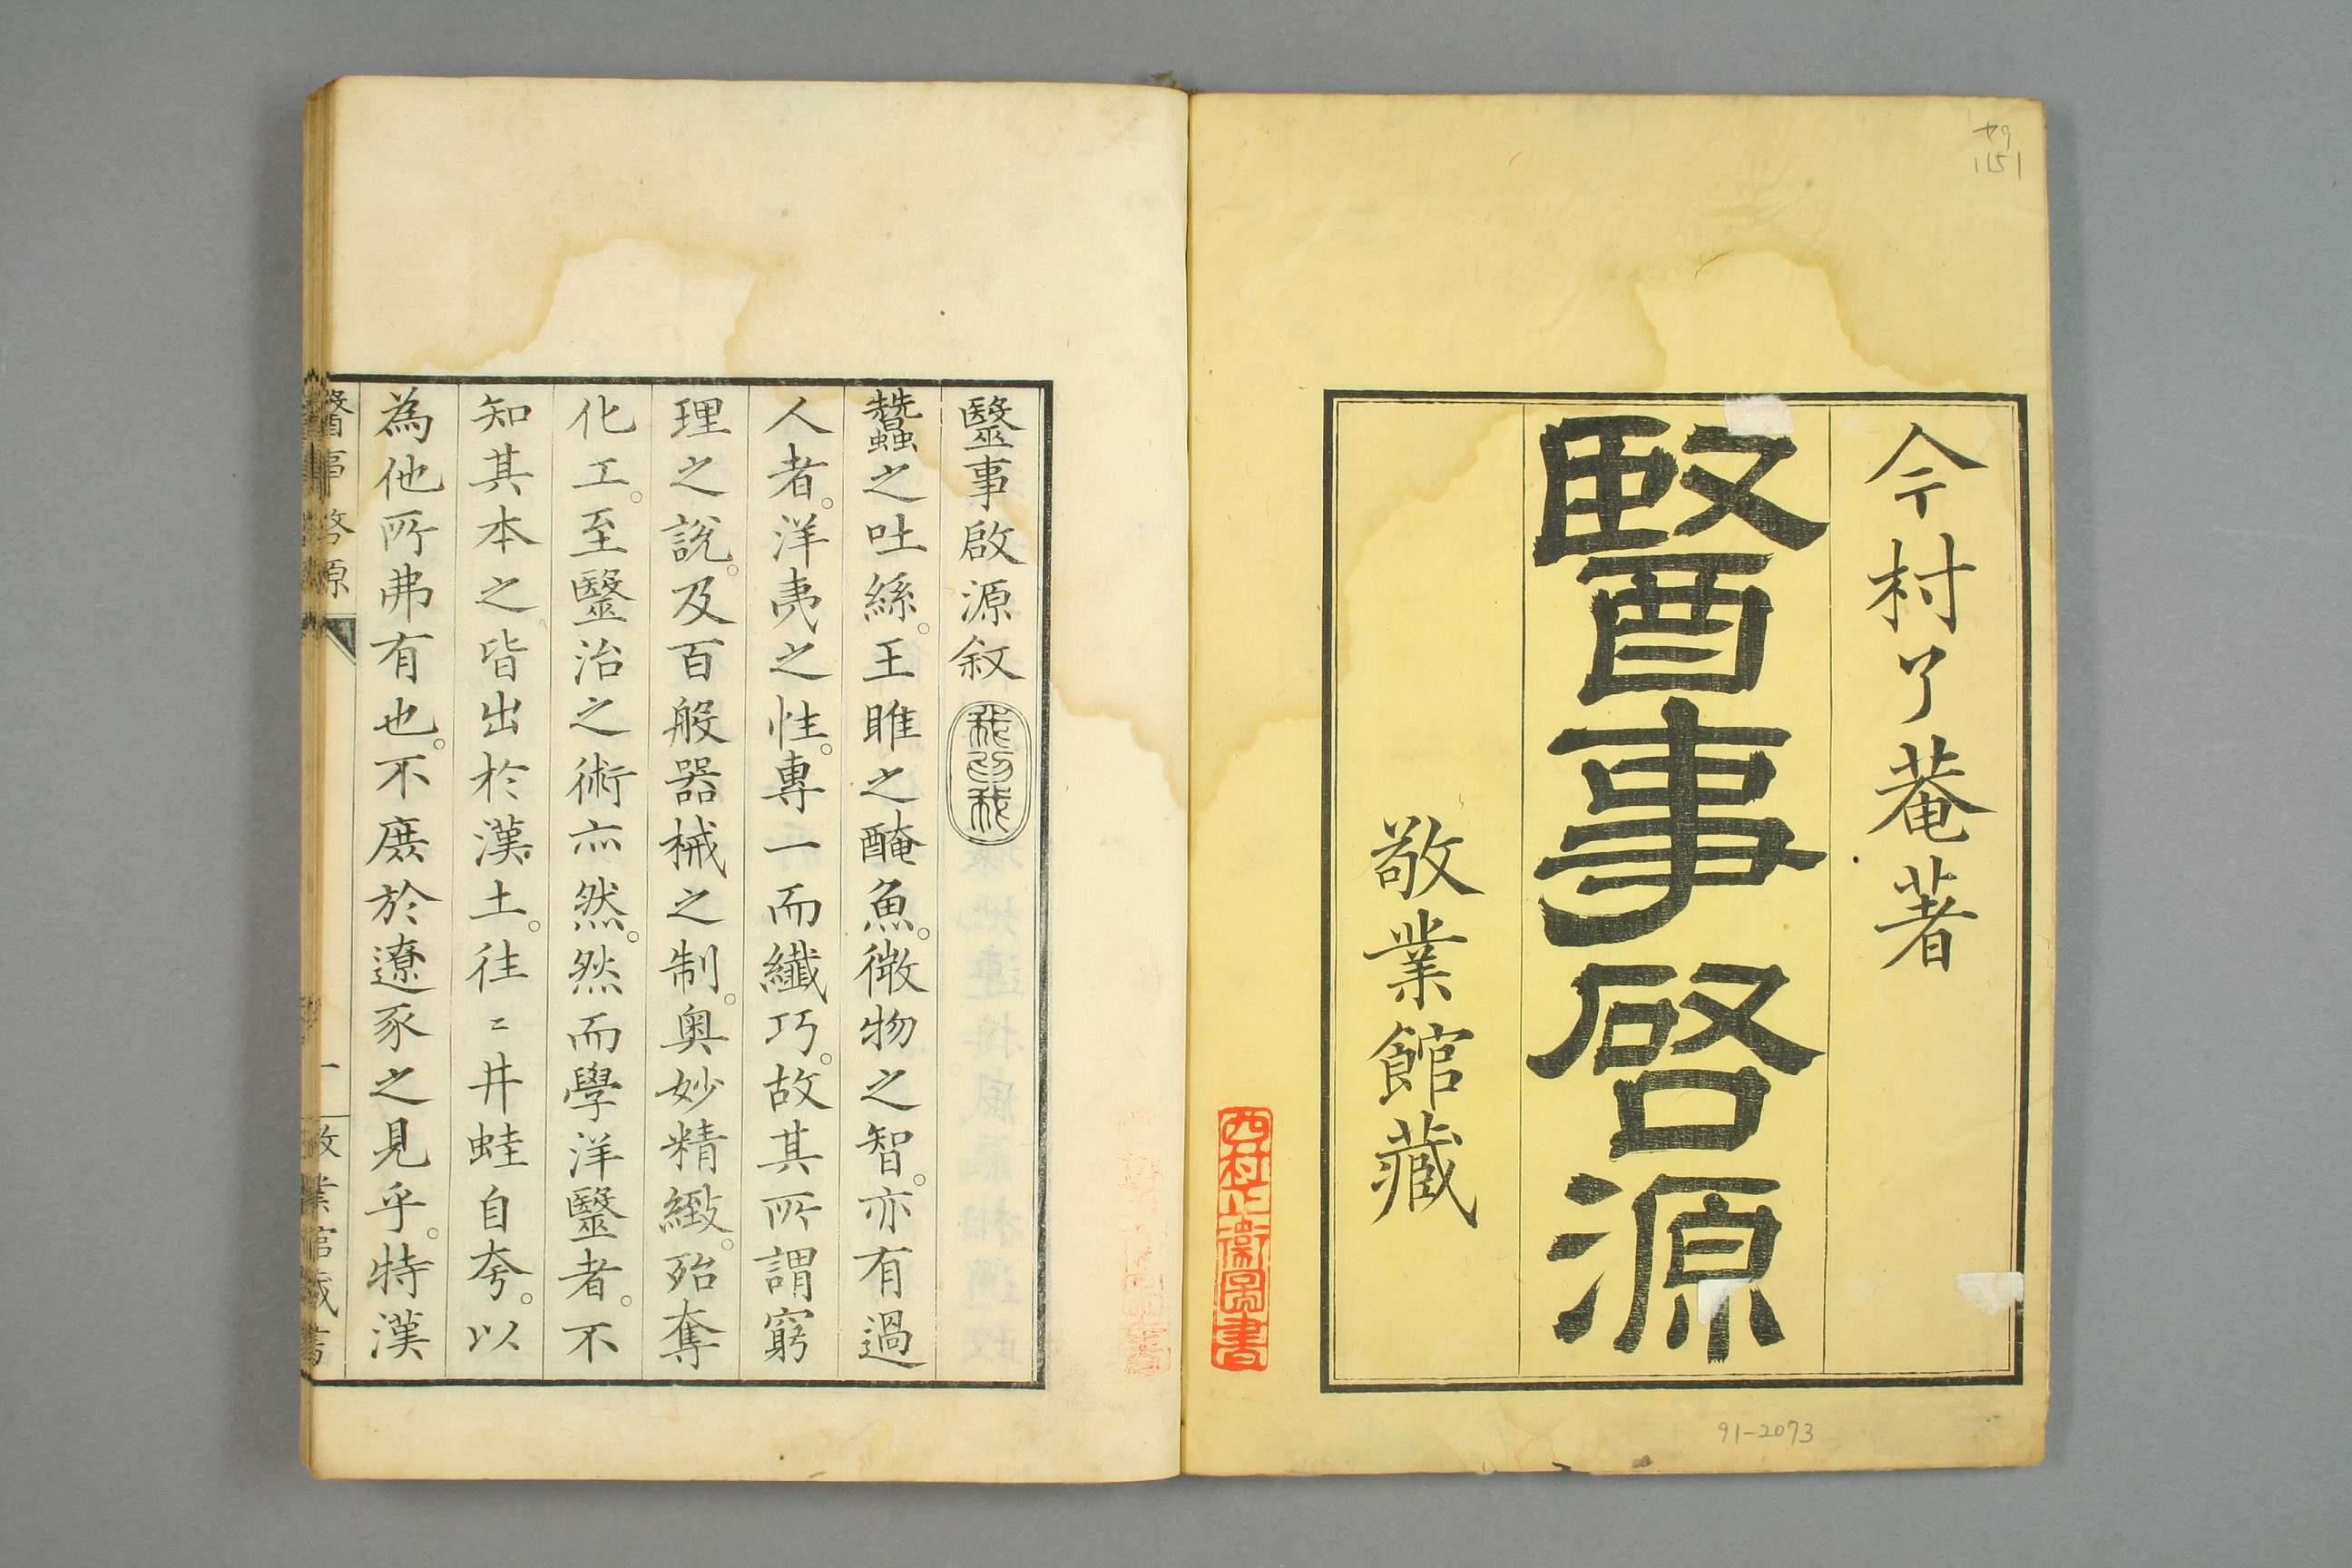 今村了菴著
醫事啓源
敬業館藏
毉事啟源叙
蠶之吐絲。王雎之醃魚。微物之智。亦有過
人者。洋夷之性。專一而纖巧。故其所謂窮
理之說。及百般器械之制。奥妙精緻。殆奪
化工。至毉治之術亦然。然而學洋毉者。不
知其本之皆出於漢土。往〻井蛙自夸。以
為他所弗有也。不庶於遼豕之見乎。特漢
醫事啓源
一
敬業館藏書
91-2073
1151